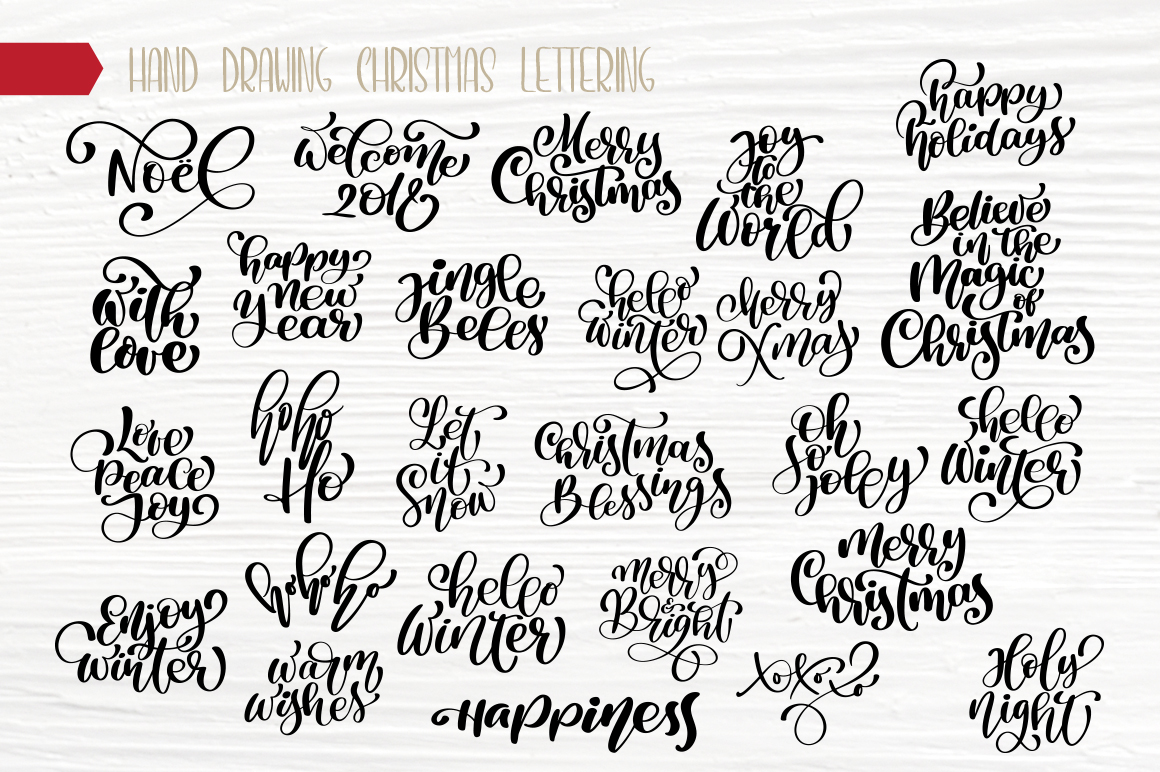 HAND DRAWING CHRISTMAS LETTERING
Noël
Welcome
2018
Merry
Christmas
Joy
to
the
World
happy
holidays
With
love
happy
new
year
Jingle
Bells
hello
winter
Merry
Xmas
Believe
in the
Magic
of
Christmas
Love
Peace
Joy
ho ho
Ho
Let
it
Snow
Christmas
Blessings
Oh
So
jolly
hello
Winter
Enjoy
winter
ho ho ho
warm
wishes
hello
Winter
merry
&
Bright
Merry
Christmas
Happiness
xoxoxo
Holy
night